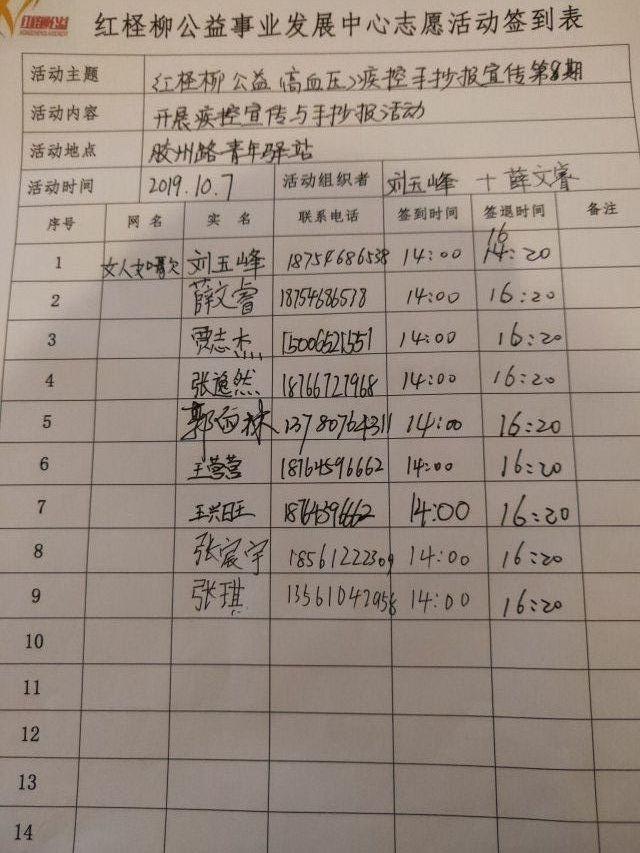 红柽柳公益
红柽柳公益事业发展中心志愿活动签到表
活动主题 红柽柳公益(高血压)疾控手抄报宣传第8期
活动内容 开展疾控宣传与手抄报活动
活动地点 胶州路青年驿站
活动时间 2019.10.7 活动组织者 刘玉峰 + 薛文睿
序号 网 名 实 名 联系电话 签到时间 签退时间 备注
1 女人如 刘玉峰 18754686538 14:00 16:20
2 薛文睿 18754686538 14:00 16:20
3 贾志杰 15006521557 14:00 16:20
4 张逸然 18766727968 14:00 16:20
5 郭雨林 13780764311 14:00 16:20
6 王营营 18764596662 14:00 16:20
7 王兴旺 18764596662 14:00 16:20
8 张宸宇 18561222309 14:00 16:20
9 张琪 13561042958 14:00 16:20
10
11
12
13
14